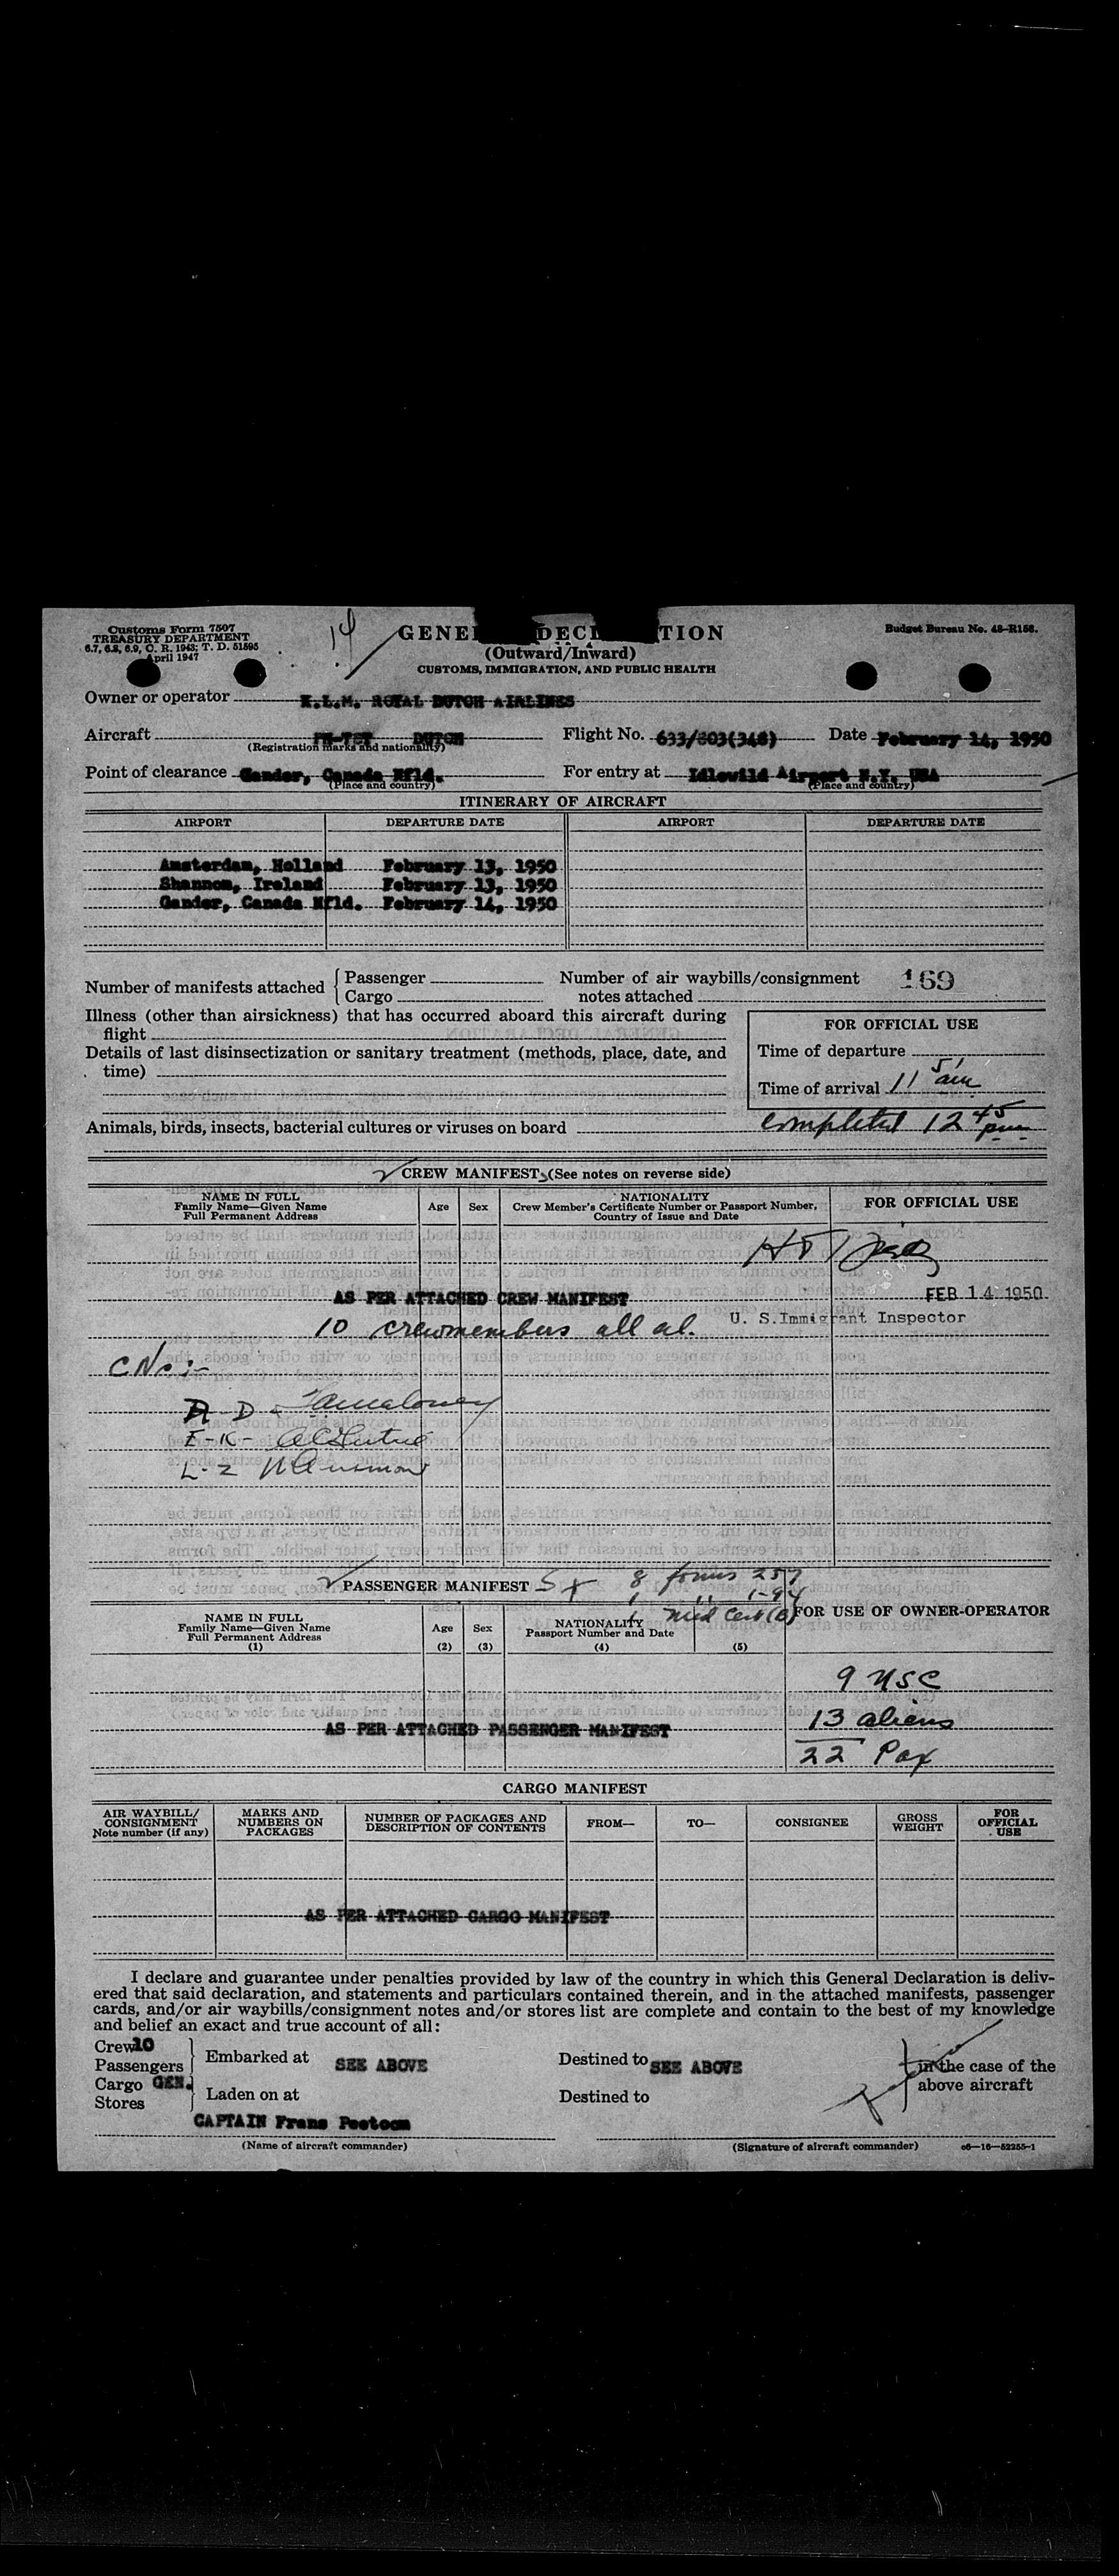 Customs Form 7507
TREASURY DEPARTMENT
6.7, 6.8, 6.9, C. R. 1943; T. D. 51595
April 1947
14
GENE DEC TION
(Outward/Inward)
CUSTOMS, IMMIGRATION, AND PUBLIC HEALTH
Budget Bureau No. 48-R158.
Owner or operator K.L.M. ROYAL DUTCH AIRLINES
Aircraft DUTCH Flight No. 633/803(348) Date February 14, 1950
(Registration marks and nationality)
Point of clearance Gander, Canada Nfld. For entry at Idlewild Airport N.Y. USA
(Place and country) (Place and country)
ITINERARY OF AIRCRAFT
AIRPORT DEPARTURE DATE AIRPORT DEPARTURE DATE
Amsterdam, Holland February 13, 1950
Shannon, Ireland February 13, 1950
Gander, Canada Nfld. February 14, 1950
Number of manifests attached { Passenger
Cargo
Number of air waybills/consignment
notes attached
169
Illness (other than airsickness) that has occurred aboard this aircraft during
flight
Details of last disinsectization or sanitary treatment (methods, place, date, and
time)
FOR OFFICIAL USE
Time of departure
Time of arrival 11 51 am
Animals, birds, insects, bacterial cultures or viruses on board
completed 12 45 pm
CREW MANIFEST (See notes on reverse side)
NAME IN FULL
Family Name—Given Name
Full Permanent Address
Age
Sex
NATIONALITY
Crew Member's Certificate Number or Passport Number,
Country of Issue and Date
FOR OFFICIAL USE
AS PER ATTACHED CREW MANIFEST
FEB 14 1950
U. S. Immigrant Inspector
10 crewmembers all al.
D
E-K-
L-Z
PASSENGER MANIFEST
8 forms 257
1 " 1-94
1 Med Cert (B)
NAME IN FULL
Family Name—Given Name
Full Permanent Address
(1)
Age
(2)
Sex
(3)
NATIONALITY
Passport Number and Date
(4) (5)
FOR USE OF OWNER-OPERATOR
9 USC
AS PER ATTACHED PASSENGER MANIFEST
13 aliens
22 Pax
CARGO MANIFEST
AIR WAYBILL/
CONSIGNMENT
Note number (if any)
MARKS AND
NUMBERS ON
PACKAGES
NUMBER OF PACKAGES AND
DESCRIPTION OF CONTENTS
FROM—
TO—
CONSIGNEE
GROSS
WEIGHT
FOR
OFFICIAL
USE
AS PER ATTACHED CARGO MANIFEST
I declare and guarantee under penalties provided by law of the country in which this General Declaration is deliv-
ered that said declaration, and statements and particulars contained therein, and in the attached manifests, passenger
cards, and/or air waybills/consignment notes and/or stores list are complete and contain to the best of my knowledge
and belief an exact and true account of all:
Crew 10
Passengers
Embarked at SEE ABOVE Destined to SEE ABOVE
in the case of the
above aircraft
Cargo GEN.
Stores
Laden on at Destined to
CAPTAIN Frans
(Name of aircraft commander) (Signature of aircraft commander) c6—16—52255-1